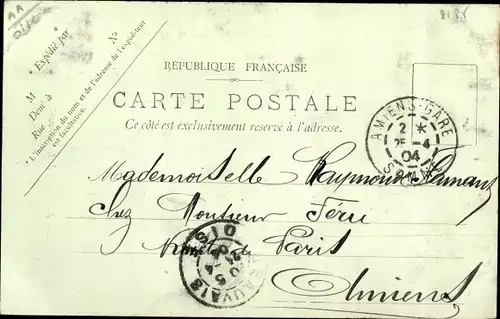 AA
Expédié par
N°
M
Demt à
Rue
L'inscription du nom et de l'adresse de l'expéditeur
est facultative.
RÉPUBLIQUE FRANÇAISE
CARTE POSTALE
Ce côté est exclusivement réservé à l'adresse.
AMIENS-GARE
2 *
25 -4
04
Mademoiselle Raymonde
chez Monsieur Féru
Route de Paris
Amiens
BEAUVAIS